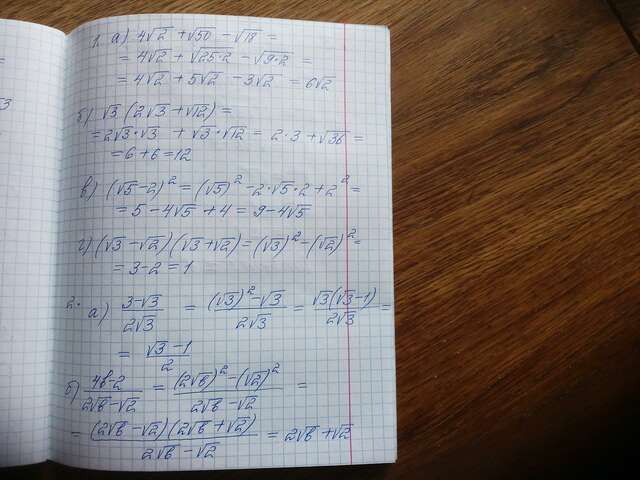 1. а) 4√2 + √50 - √18 =
= 4√2 + √25·2 - √9·2 =
= 4√2 + 5√2 - 3√2 = 6√2
б) √3 (2√3 + √12) =
= 2√3·√3 + √3·√12 = 2·3 + √36 =
= 6 + 6 = 12
в) (√5 - 2)² = (√5)² - 2·√5·2 + 2² =
= 5 - 4√5 + 4 = 9 - 4√5
г) (√3 - √2)(√3 + √2) = (√3)² - (√2)² =
= 3 - 2 = 1
2. а) (3-√3)/(2√3) = ((√3)² - √3)/(2√3) = (√3(√3-1))/(2√3) =
= (√3 - 1)/2
б) (4в-2)/(2√в - √2) = ((2√в)² - (√2)²)/(2√в - √2) =
= ((2√в - √2)(2√в + √2))/(2√в - √2) = 2√в + √2